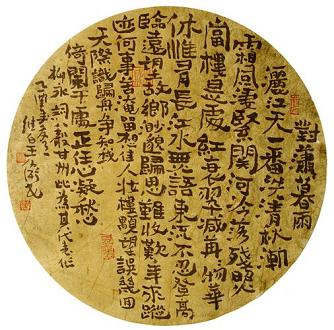 對瀟瀟暮雨
灑江天一番洗清秋漸
霜風淒緊關河冷落殘照
當樓是處紅衰翠減苒苒物華
休惟有長江水無語東流不忍登高
臨遠望故鄉渺邈歸思難收歎年來蹤
迹何事苦淹留想佳人妝樓顒望誤幾回
天際識歸舟爭知我
倚闌干處正恁凝愁
柳永詞八聲甘州此為其代表作